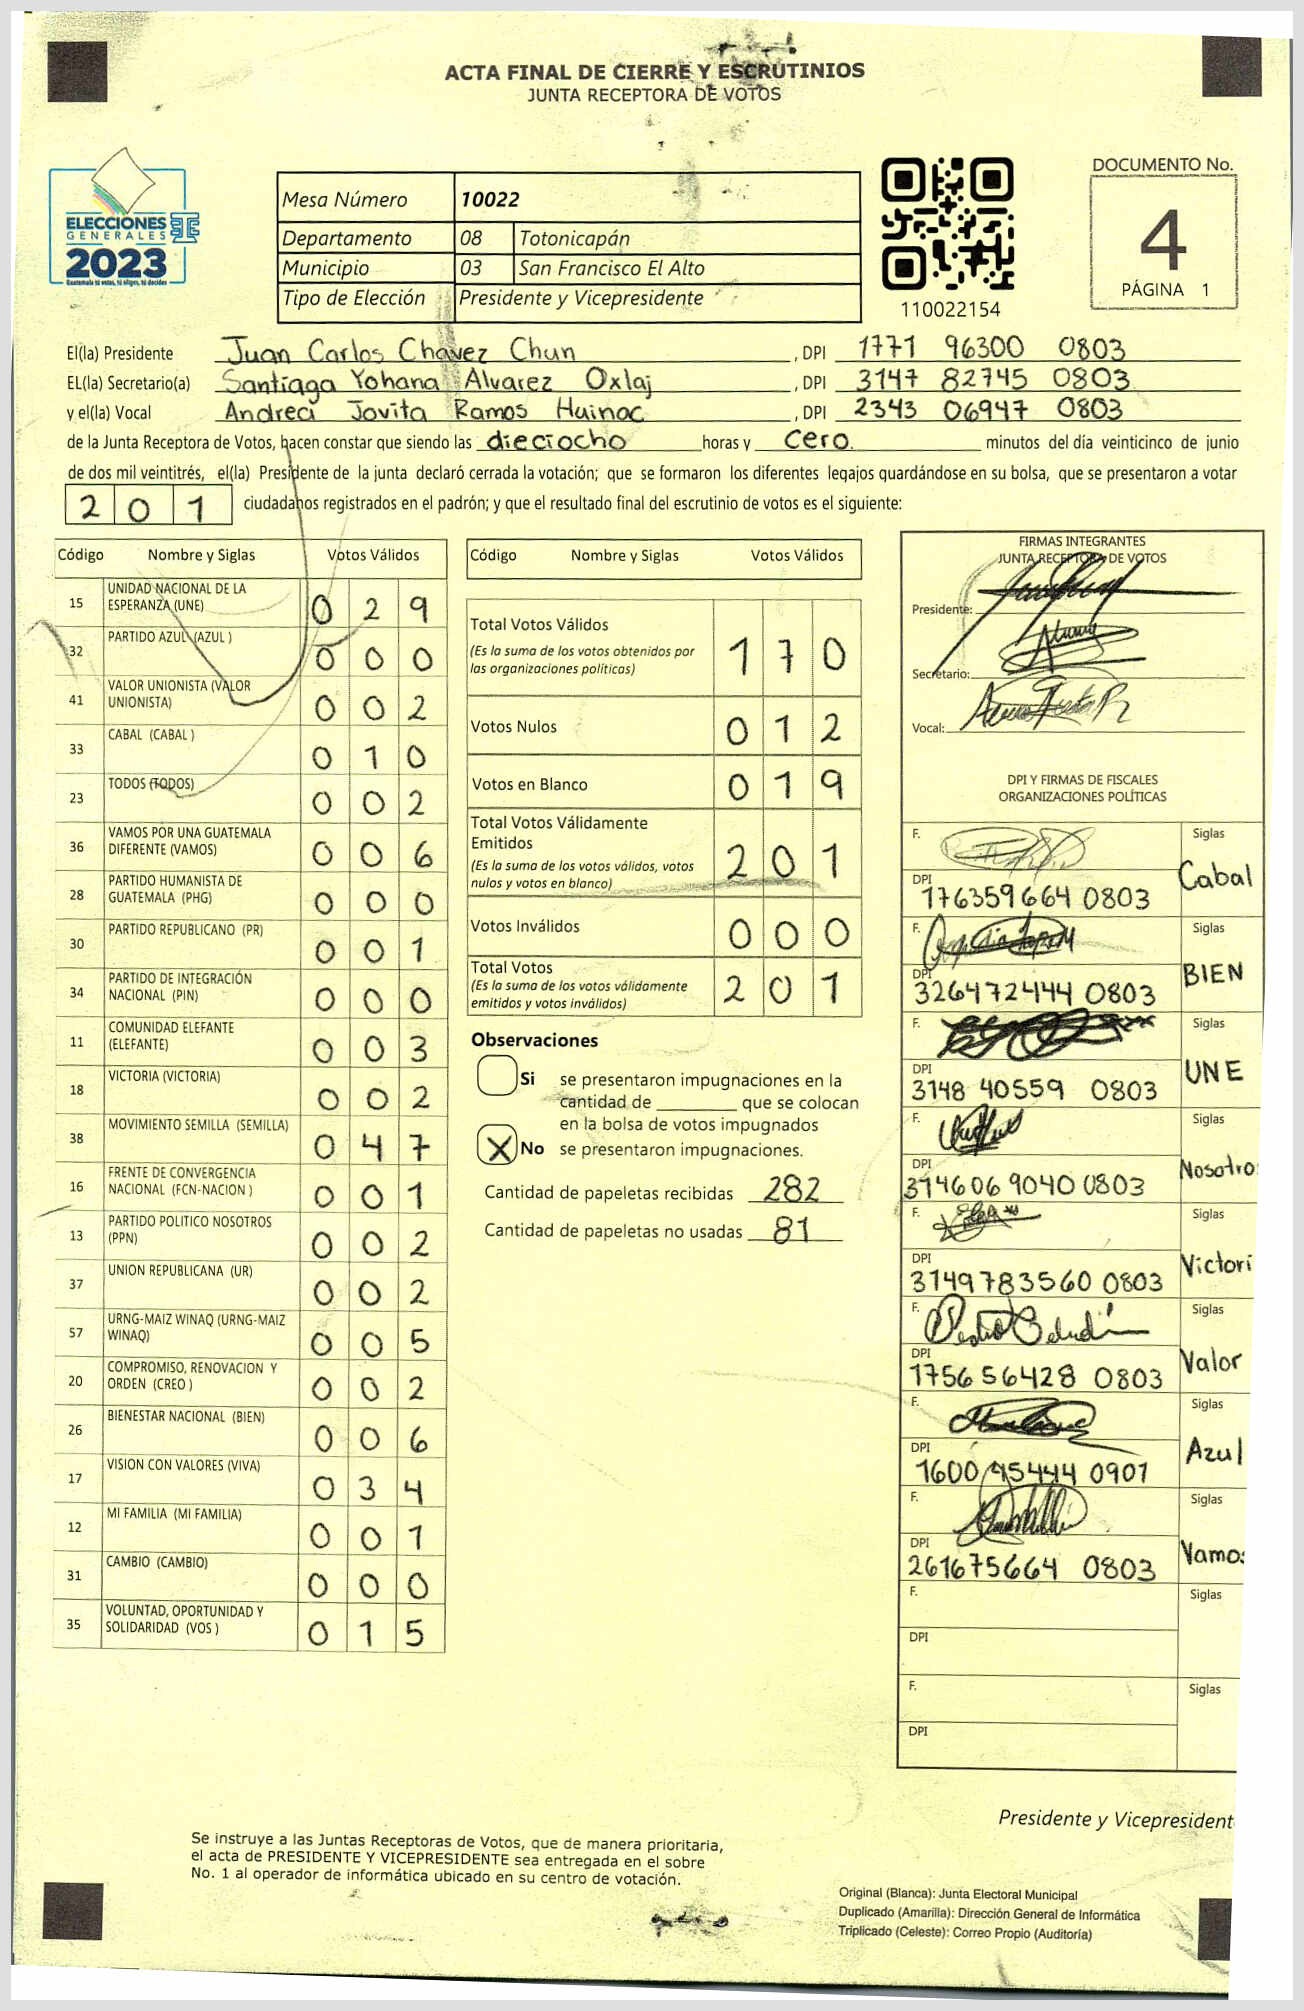 ACTA FINAL DE CIERRE Y ESCRUTINIOS
JUNTA RECEPTORA DE VOTOS
ELECCIONES
GENERALES
2023
Guatemala tú votas, tú eliges, tú decides
Mesa Número 10022
Departamento 08 Totonicapán
Municipio 03 San Francisco El Alto
Tipo de Elección Presidente y Vicepresidente
110022154
DOCUMENTO No.
4
PÁGINA 1
El(la) Presidente Juan Carlos Chavez Chun , DPI 1771 96300 0803
EL(la) Secretario(a) Santiaga Yohana Alvarez Oxlaj , DPI 3147 82745 0803
y el(la) Vocal Andrea Jovita Ramos Huinac , DPI 2343 06947 0803
de la Junta Receptora de Votos, hacen constar que siendo las dieciocho horas y cero. minutos del día veinticinco de junio
de dos mil veintitrés, el(la) Presidente de la junta declaró cerrada la votación; que se formaron los diferentes legajos guardándose en su bolsa, que se presentaron a votar
201 ciudadanos registrados en el padrón; y que el resultado final del escrutinio de votos es el siguiente:
Código Nombre y Siglas Votos Válidos
15 UNIDAD NACIONAL DE LA
ESPERANZA (UNE) 029
32 PARTIDO AZUL (AZUL ) 000
41 VALOR UNIONISTA (VALOR
UNIONISTA) 002
33 CABAL (CABAL ) 010
23 TODOS (TODOS) 002
36 VAMOS POR UNA GUATEMALA
DIFERENTE (VAMOS) 006
28 PARTIDO HUMANISTA DE
GUATEMALA (PHG) 000
30 PARTIDO REPUBLICANO (PR) 001
34 PARTIDO DE INTEGRACIÓN
NACIONAL (PIN) 000
11 COMUNIDAD ELEFANTE
(ELEFANTE) 003
18 VICTORIA (VICTORIA) 002
38 MOVIMIENTO SEMILLA (SEMILLA) 047
16 FRENTE DE CONVERGENCIA
NACIONAL (FCN-NACION ) 001
13 PARTIDO POLITICO NOSOTROS
(PPN) 002
37 UNION REPUBLICANA (UR) 002
57 URNG-MAIZ WINAQ (URNG-MAIZ
WINAQ) 005
20 COMPROMISO, RENOVACION Y
ORDEN (CREO ) 002
26 BIENESTAR NACIONAL (BIEN) 006
17 VISION CON VALORES (VIVA) 034
12 MI FAMILIA (MI FAMILIA) 001
31 CAMBIO (CAMBIO) 000
35 VOLUNTAD, OPORTUNIDAD Y
SOLIDARIDAD (VOS ) 015
Código Nombre y Siglas Votos Válidos
Total Votos Válidos 170
(Es la suma de los votos obtenidos por
las organizaciones políticas)
Votos Nulos 012
Votos en Blanco 019
Total Votos Válidamente
Emitidos 201
(Es la suma de los votos válidos, votos
nulos y votos en blanco)
Votos Inválidos 000
Total Votos 201
(Es la suma de los votos válidamente
emitidos y votos inválidos)
Observaciones
Si se presentaron impugnaciones en la
cantidad de ________ que se colocan
en la bolsa de votos impugnados
X No se presentaron impugnaciones.
Cantidad de papeletas recibidas 282
Cantidad de papeletas no usadas 81
FIRMAS INTEGRANTES
JUNTA RECEPTORA DE VOTOS
Presidente:
Secretario:
Vocal:
DPI Y FIRMAS DE FISCALES
ORGANIZACIONES POLÍTICAS
F. Siglas
Cabal
DPI
176359664 0803
F. Siglas
BIEN
DPI
326472444 0803
F. Siglas
UNE
DPI
3148 40559 0803
F. Siglas
Nosotro
DPI
314606 9040 0803
F. Siglas
Victori
DPI
3149783560 0803
F. Siglas
Valor
DPI
1756 56428 0803
F. Siglas
Azul
DPI
1600 45444 0901
F. Siglas
Vamos
DPI
261675664 0803
F. Siglas
DPI
F. Siglas
DPI
Presidente y Vicepresident
Se instruye a las Juntas Receptoras de Votos, que de manera prioritaria,
el acta de PRESIDENTE Y VICEPRESIDENTE sea entregada en el sobre
No. 1 al operador de informática ubicado en su centro de votación.
Original (Blanca): Junta Electoral Municipal
Duplicado (Amarilla): Dirección General de Informática
Triplicado (Celeste): Correo Propio (Auditoría)